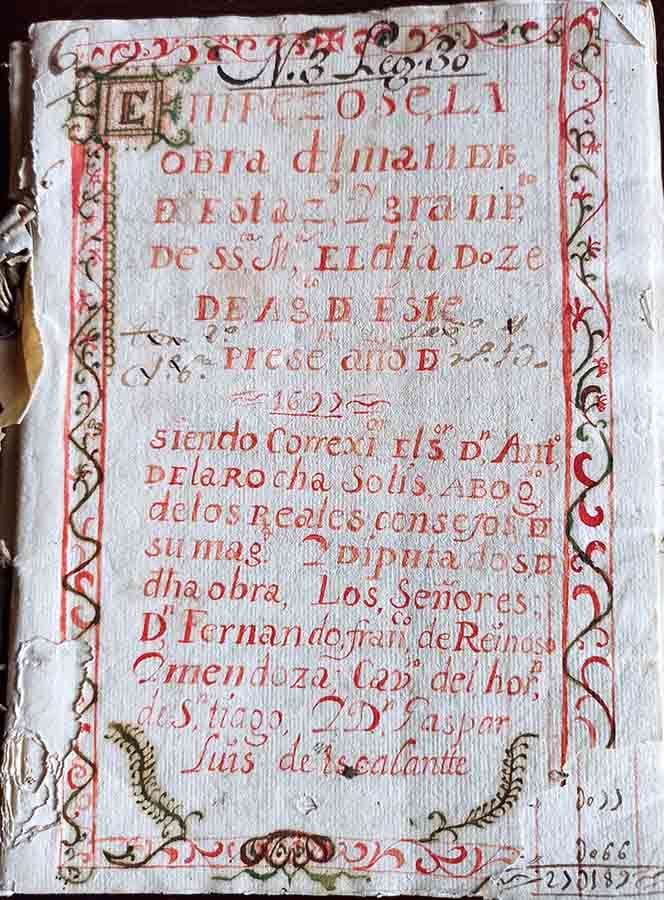 N.3 Leg. 30
EMPEZOSE, LA
OBRA del MANDR.
D ESta Z, Y granP,
DE SS.ca M, EL dia DoZe
DE AGto DE ESte
Tom 2º Leg.º
PResete año D
1699
siendo Correxi.or El s.or D.n Ant.o
DE La ROcha Solis, ABOg.do
de los Reales, consejos, D
su mag. Y Diputados, D
dha obra, Los, Señores;
D.n Fernando, fran.co de Reinoso
Y mendoza; Cav.o del hor.n
de S.ntiago, Y D.n Gaspar
Luis de Escalantte